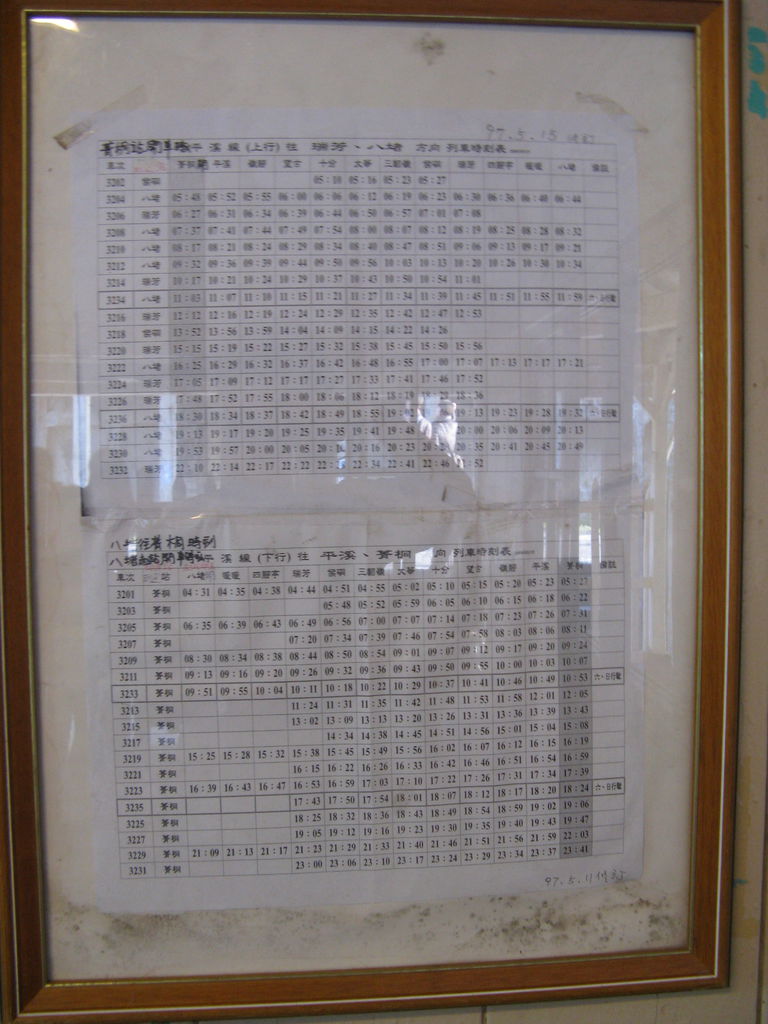 97.5.15
平溪線(上行)往 瑞芳、八堵 方向列車時刻表
車次 菁桐 平溪 嶺腳 望古 十分 大華 三貂嶺 侯硐 瑞芳 四腳亭 暖暖 八堵 備註
3202 侯硐 05:10 05:16 05:23 05:27
3204 八堵 05:48 05:52 05:55 06:00 06:06 06:12 06:19 06:23 06:30 06:36 06:40 06:44
3206 瑞芳 06:27 06:31 06:34 06:39 06:44 06:50 06:57 07:01 07:08
3208 八堵 07:37 07:41 07:44 07:49 07:54 08:00 08:07 08:12 08:19 08:25 08:28 08:32
3210 八堵 08:17 08:21 08:24 08:29 08:34 08:40 08:47 08:51 09:06 09:13 09:17 09:21
3212 八堵 09:32 09:36 09:39 09:44 09:50 09:56 10:03 10:13 10:20 10:26 10:30 10:34
3214 瑞芳 10:17 10:21 10:24 10:29 10:37 10:43 10:50 10:54 11:01
3234 八堵 11:03 11:07 11:10 11:15 11:21 11:27 11:34 11:39 11:45 11:51 11:55 11:59 六、日行駛
3216 瑞芳 12:12 12:16 12:19 12:24 12:29 12:35 12:42 12:47 12:53
3218 侯硐 13:52 13:56 13:59 14:04 14:09 14:15 14:22 14:26
3220 瑞芳 15:15 15:19 15:22 15:27 15:32 15:38 15:45 15:50 15:56
3222 八堵 16:25 16:29 16:32 16:37 16:42 16:48 16:55 17:00 17:07 17:13 17:17 17:21
3224 瑞芳 17:05 17:09 17:12 17:17 17:27 17:33 17:41 17:46 17:52
3226 瑞芳 17:48 17:52 17:55 18:00 18:06 18:12 18:19 18:36
3236 八堵 18:30 18:34 18:37 18:42 18:49 18:55 19:13 19:23 19:28 19:32 六、日行駛
3228 八堵 19:13 19:17 19:20 19:25 19:35 19:41 19:48 20:00 20:06 20:09 20:13
3230 八堵 19:53 19:57 20:00 20:05 20:16 20:23 20:35 20:41 20:45 20:49
3232 瑞芳 22:10 22:14 22:17 22:22 22:34 22:41 22:46 22:52
八堵往菁桐時刻
平溪線(下行)往 平溪、菁桐 方向列車時刻表
車次 站 八堵 暖暖 四腳亭 瑞芳 侯硐 三貂嶺 大華 十分 望古 嶺腳 平溪 菁桐 備註
3201 菁桐 04:31 04:35 04:38 04:44 04:51 04:55 05:02 05:10 05:15 05:20 05:23 05:27
3203 菁桐 05:48 05:52 05:59 06:05 06:10 06:15 06:18 06:22
3205 菁桐 06:35 06:39 06:43 06:49 06:56 07:00 07:07 07:14 07:18 07:23 07:26 07:31
3207 菁桐 07:20 07:34 07:39 07:46 07:54 07:58 08:03 08:06 08:11
3209 菁桐 08:30 08:34 08:38 08:44 08:50 08:54 09:01 09:07 09:12 09:17 09:20 09:24
3211 菁桐 09:13 09:16 09:20 09:26 09:32 09:36 09:43 09:50 09:55 10:00 10:03 10:07
3233 菁桐 09:51 09:55 10:04 10:11 10:18 10:22 10:29 10:37 10:41 10:46 10:49 10:53 六、日行駛
3213 菁桐 11:24 11:31 11:35 11:42 11:48 11:53 11:58 12:01 12:05
3215 菁桐 13:02 13:09 13:13 13:20 13:26 13:31 13:36 13:39 13:43
3217 菁桐 14:34 14:38 14:45 14:51 14:56 15:01 15:04 15:08
3219 菁桐 15:25 15:28 15:32 15:38 15:45 15:49 15:56 16:02 16:07 16:12 16:15 16:19
3221 菁桐 16:15 16:22 16:26 16:33 16:42 16:46 16:51 16:54 16:59
3223 菁桐 16:39 16:43 16:47 16:53 16:59 17:03 17:10 17:22 17:26 17:31 17:34 17:39
3235 菁桐 17:43 17:50 17:54 18:01 18:07 18:12 18:17 18:20 18:24 六、日行駛
3225 菁桐 18:25 18:32 18:36 18:43 18:49 18:54 18:59 19:02 19:06
3227 菁桐 19:05 19:12 19:16 19:23 19:30 19:35 19:40 19:43 19:47
3229 菁桐 21:09 21:13 21:17 21:23 21:29 21:33 21:40 21:46 21:51 21:56 21:59 22:03
3231 菁桐 23:00 23:06 23:10 23:17 23:24 23:29 23:34 23:37 23:41
97.5.11修訂